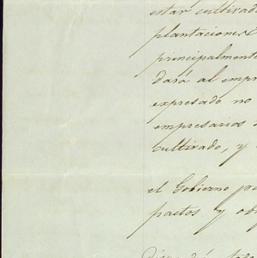 estar cultivad
plantaciones
principalmente
dará al empr
expresado no
empresarios
cultivado, y
el Gobierno
pactos y ob